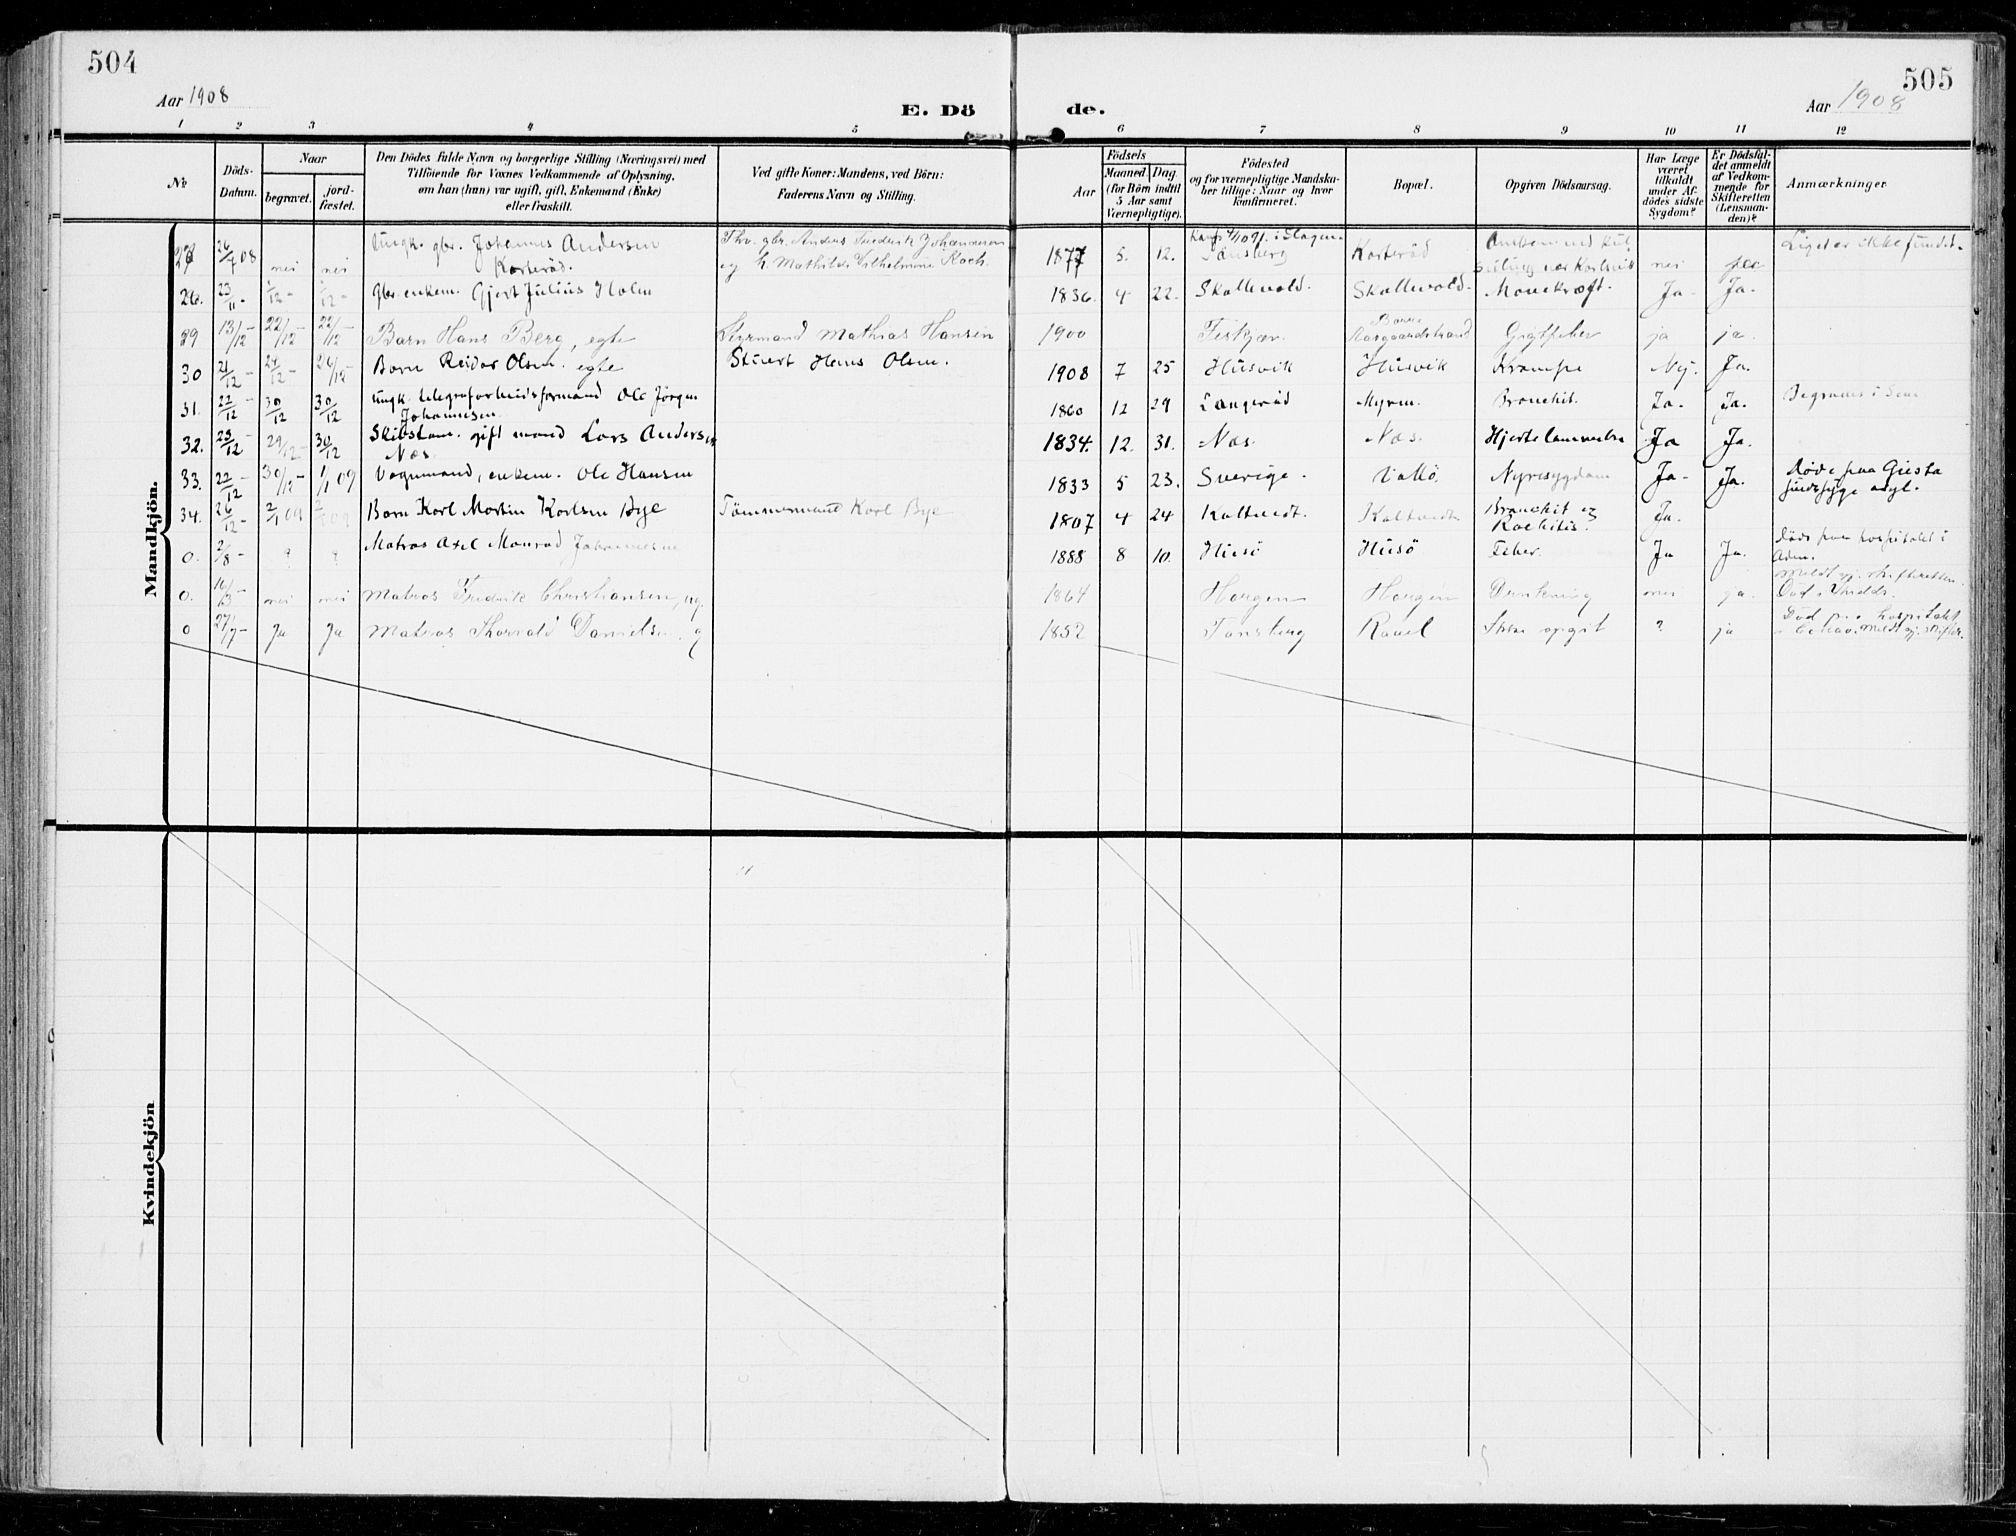 504
505
Aar 1908
Aar 1908
E. Dö de.
1 2 3 4 5 6 7 8 9 10 11 12
No
Döds-Datum.
Naar
begravet.
jord-fæstet.
Den Dödes fulde Navn og borgerlige Stilling (Næringsvei) med
Tilföiende for Voxnes Vedkommende af Oplysning,
om han (hun) var ugift, gift, Enkemand (Enke)
eller fraskilt.
Ved gifte Koner: Mandens, ved Börn:
Faderens Navn og Stilling.
Födsels
Aar
Maaned Dag
(for Börn indtil
5 Aar samt
Værnepligtige).
Födested
og for værnepligtige Mandska-
ber tillige: Naar og hvor
konfirmeret.
Bopæl.
Opgiven Dödsaarsag.
Har Læge
været
tilkaldt
under Af-
dödes sidste
Sygdom?
Er Dödsfal-
det anmeldt
af Vedkom-
mende for
Skifteretten
(Lensman-
den)?
Anmærkninger
Mandkjön.
27 26/7 08 nei nei Ungk. gbr. Johannes Andersen Fhv. gbr. Anders Fredrik Johannesen 1877 5. 12. Tönsberg Korterød nei Liget er ikke fundet.
Korterød. og h. Mathilde Vilhelmine Koch.
28. 23/11 - Gbr. enkem. Gjert Julius Holm 1836. 4 22. Skallevold. Skallevold. Ja- Ja.
29 13/12 - 22/12 - 22/12 - Barn Hans Berg, egte Styrmand Mathias Hansen 1900 Aasgaardstrand Gigtfeber ja ja.
30 21/12 - 24/12 - 24/12 - Barn Reidar Olsen. egte Stuert Hans Olsen. 1908 7 25 Husvik Husvik Krampe Nej. Ja.
31. 22/12 - 30/12 30/12 Ungk. telegrafarbeidsformand Ole Jörgen 1860 12 29 Langerød Myren. Bronchit. Ja. Ja. Begraves i Sem
Johannesen.
32. 23/12 - 29/12 - 30/12 Skibstøm. gift mand Lars Andersen 1834. 12. 31. Næs. Næs. Hjertelammelse Ja Ja.
Næs.
33. 22/12 30/12 - 1/1 09 Vognmand, enkem. Ole Hansen 1833 5 23. Sverige. Vallö. Nyresygdom Ja- Ja. Döde paa Giesta
sindssyge asyl.
34. 26/12 - 2/1 09 Barn Karl Martin Karlsen Bye Tömmermand Karl Bye 1907 4 24 Kaltvedt. Kaltvedt Bronchit og Ja.
Rachitis.
0. 2/8 - ? ? Matros Axel Monrad Johannesen 1888 8 10. Husö Husö Feber. Ja Ja. Döde paa hospitalet i
Aden.
0. nei nei Matros Fredrik Christiansen, ug. 1864 Horgen Horgen Drukning nei ja. Meldt gj. skifteretten.
0 27/7 - Ja Ja Matros Thorvald Danielsen, g 1852 Tönsberg Ravel Ikke opgit ? ja Död paa hospitalet
Kvindekjön